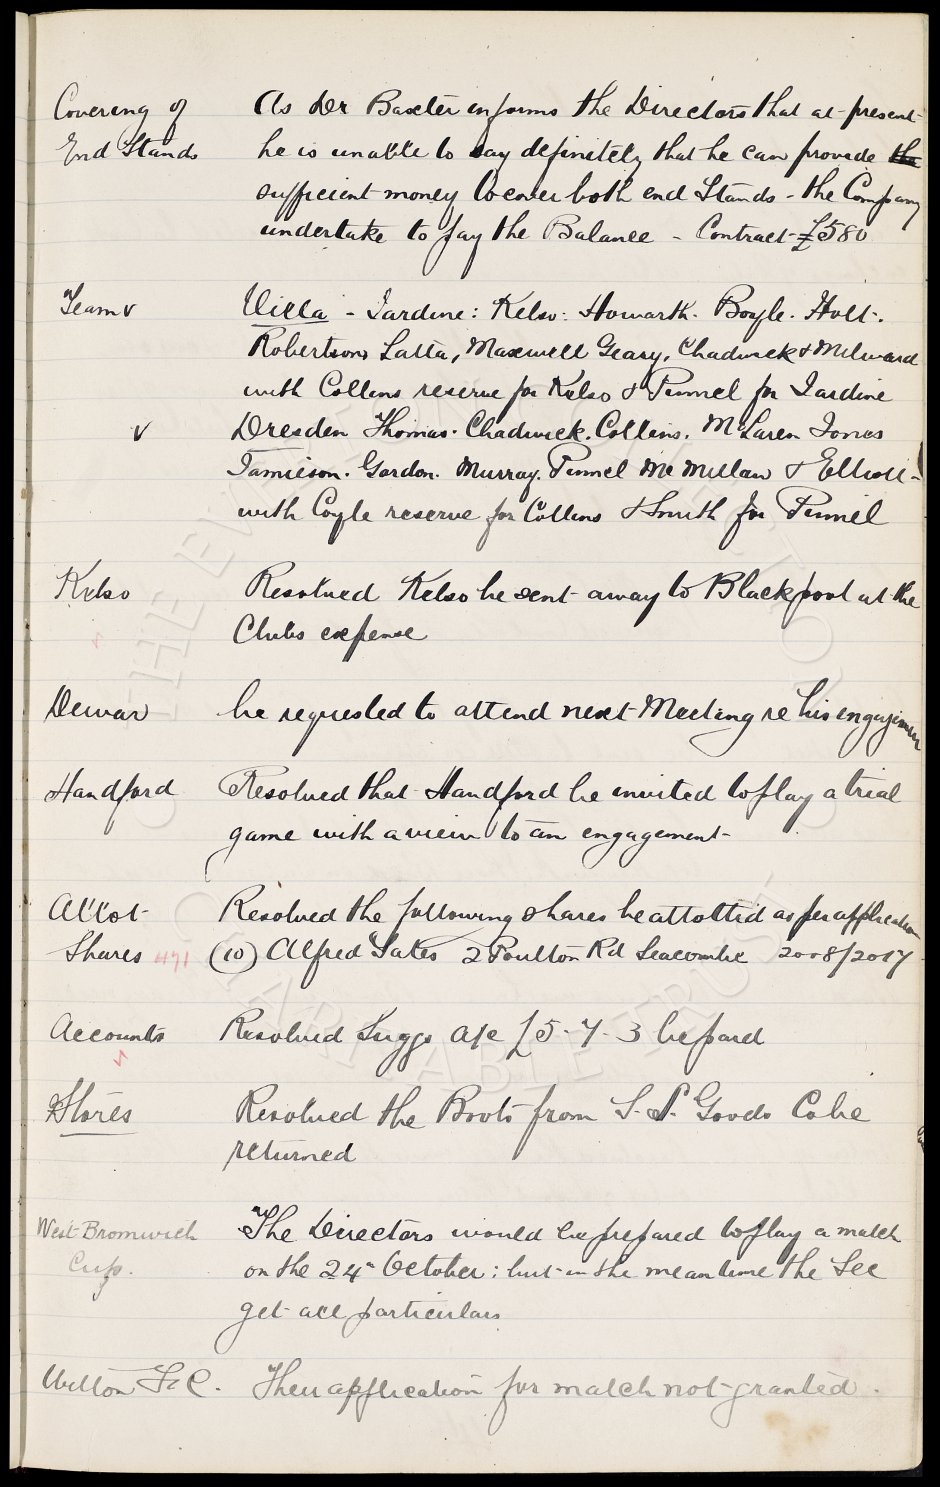 Covering of As Dr Baxter informs the Directors that at present
End Stands he is unable to say definitely that he can provide the
sufficient money to cover both end Stands - the Company
undertake to pay the Balance - Contract £580
Team v Villa - Jardine: Kelso: Howarth. Boyle. Holt.
Robertson Latta, Maxwell Geary, Chadwick & Milward
with Collins reserve for Kelso & Pinnel for Jardine
v Dresden Thomas. Chadwick. Collins. McLaren Jones
Jamieson. Gordon. Murray. Pinnel McMillan & Elliott -
with Coyle reserve for Collins & Smith for Pinnel
Kelso Resolved Kelso be sent away to Blackpool at the
Clubs expense
Dewar be requested to attend next Meeting re his engagement
Handford Resolved that Handford be invited to play a trial
game with a view to an engagement
Allot Resolved the following shares be allotted as per application
Shares 471 (10) Alfred Yates 2 Poulton Rd Seacombe 2008/2017
Accounts Resolved Suggs a/c £5-7-3 be paid
Stores Resolved the Boots from S.P. Goods Co be
returned
West Bromwich The Directors would be prepared to play a match
Cup. on the 24th October: but in the meantime the Sec
get all particulars
F.C. Their application for match not granted.
THE EVERTON COLLECTION
CHARITABLE TRUST